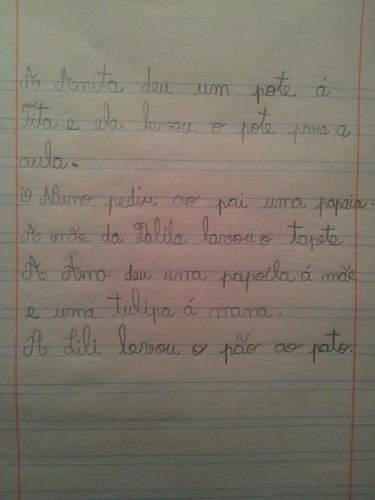 A Anita deu um pote á
Tita e ela levou o pote para a
aula.
O Nuno pediu ao pai uma papaia.
A mãe da Dalila lavou o tapete
A Ana deu uma papoila á mãe
e uma tulipa á mana.
A Lili levou o pão ao pato.